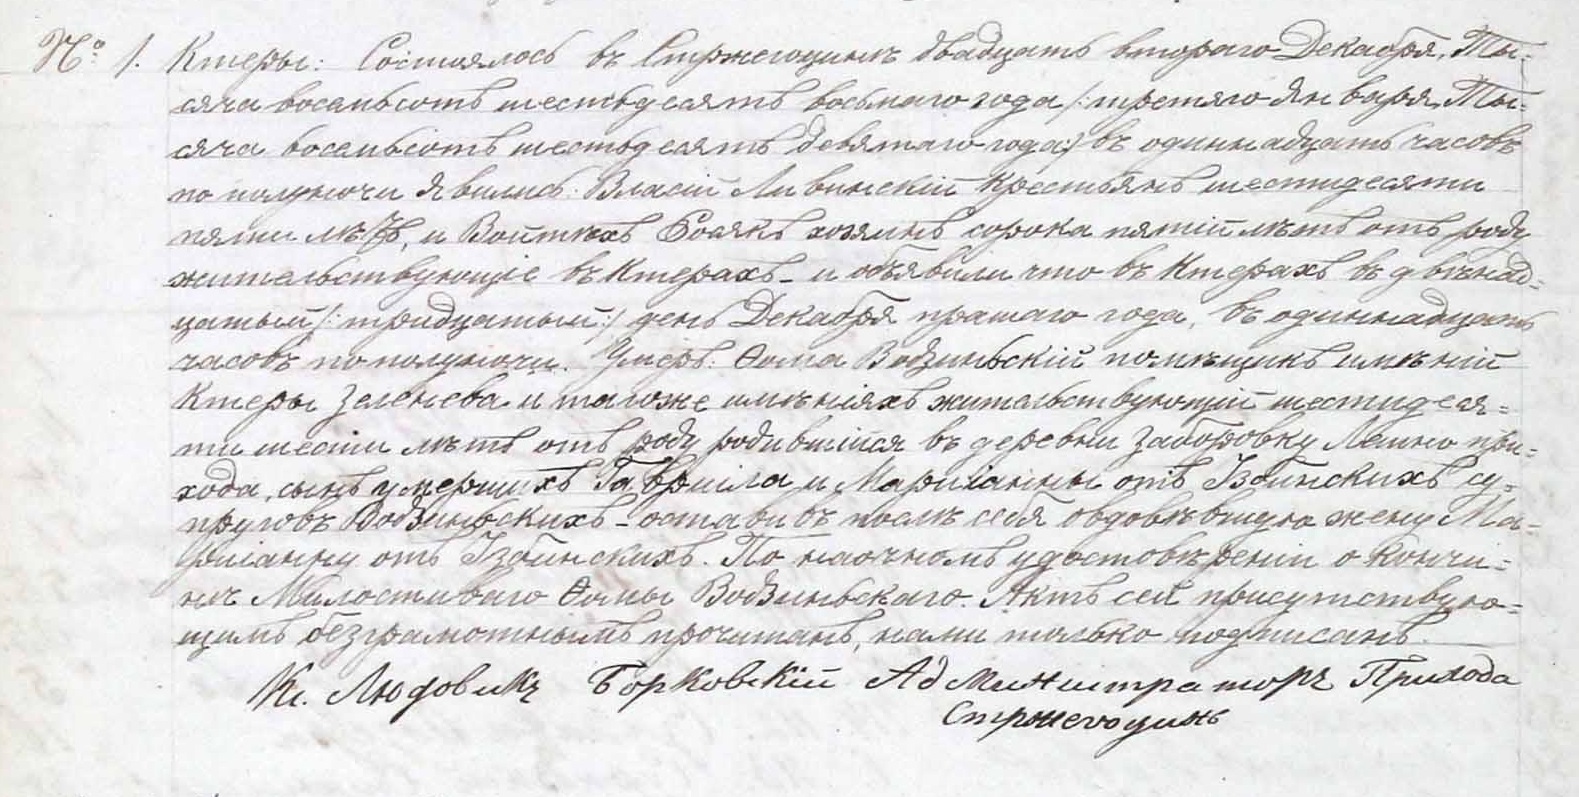 № 1. Ктеры: Состоялось въ Стржегоцинъ двадцать втораго Декабря, Ты-
сяча восемьсотъ шестьдесятъ восьмаго года /: третяго Января, Ты-
сяча восемьсотъ шестьдесятъ девятаго года :/ въ одиннадцать часовъ
по полуночи явились: Власій Ливинскій Крестьянъ шестидесяти
пяти лѣтъ, и Войтехъ Босякъ хозяинъ сорока пятій лѣтъ отъ роду
жительствующіе въ Ктерахъ - и объявили что въ Ктерахъ въ двѣнад-
цатый /: тридцатый :/ день Декабря прошаго года, въ одиннадцать
часовъ по полуночи. Умеръ: Ѳома Водзиньскій помѣщикъ имѣній
Ктеры Зеленева и таможе имѣніяхъ жительствующій шестидеся-
ти шести лѣтъ отъ роду родившійся въ деревни Заборовку Лешно при-
хода, сынъ умершихъ Гавріила и Маріанны отъ Избинскихъ су-
пруговъ Водзиньскихъ - оставивъ послѣ себя овдовѣвшую жену Ма-
ріанну отъ Избинскихъ. По наочномъ удостовѣреніи о кончи-
нѣ Милостиваго Ѳомы Водзиньскаго. Актъ сей присутствую-
щимъ безграмотнымъ прочитанъ, нами только подписанъ.
Кс. Людовикъ Борковскій Администраторъ Прихода
Стржегоцинъ